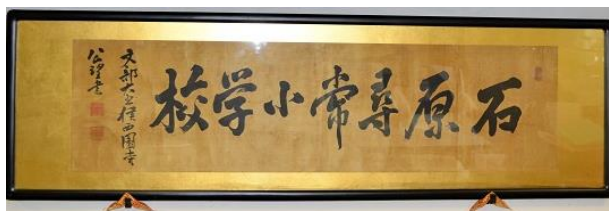 石原尋常小学校
文部大臣侯西園寺
公望書